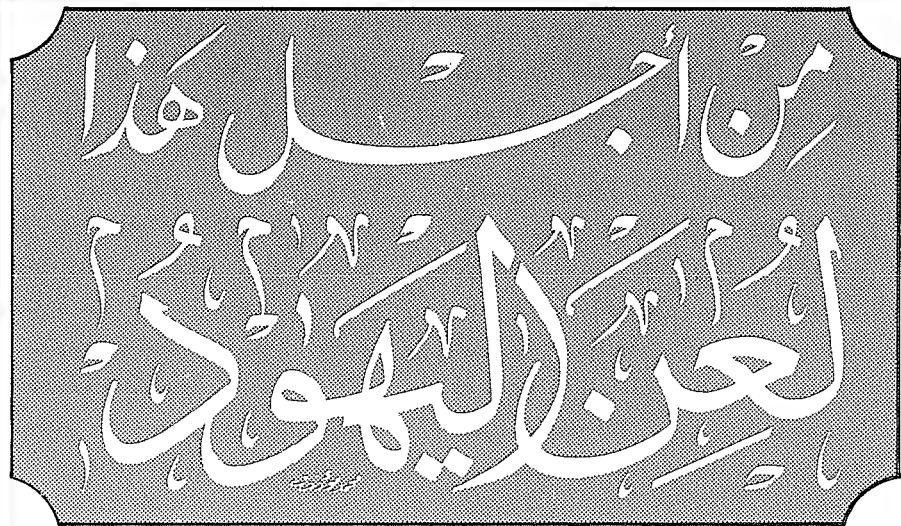 مِنْ أجْل هَذَا
لُعِنَ اليَهُودُ